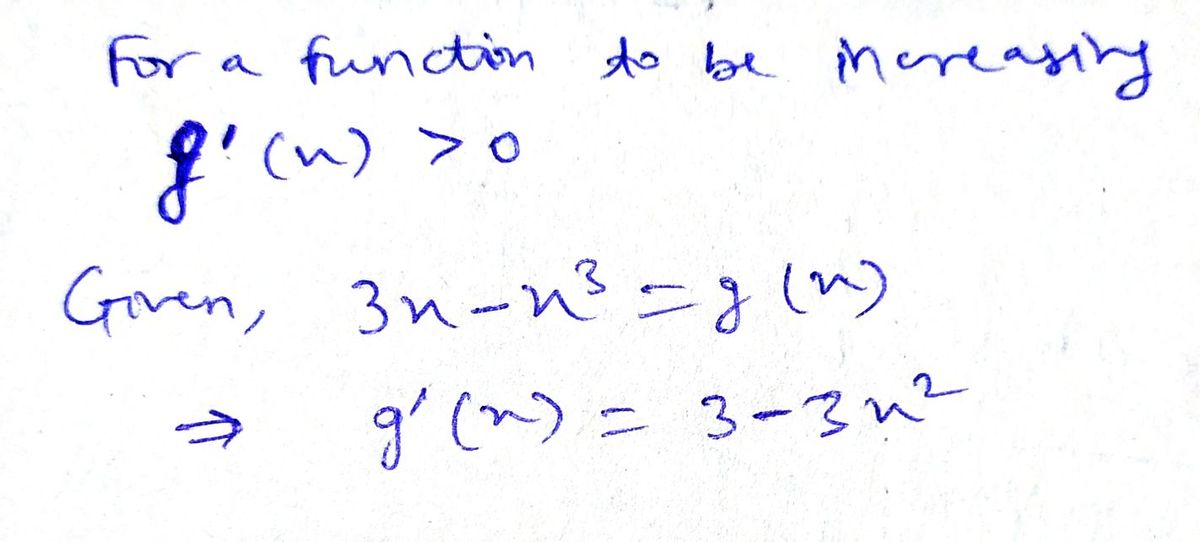 For a function to be increasing
g'(x) > 0
Given, 3x - x³ = g(x)
⇒ g'(x) = 3 - 3x²